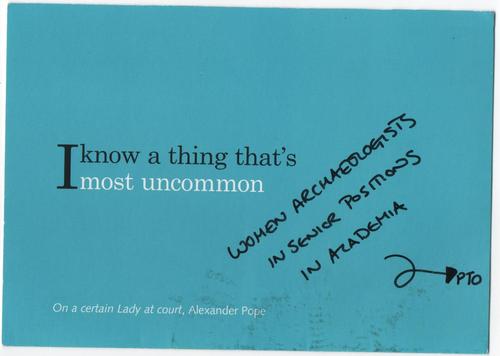 I know a thing that's
most uncommon
WOMEN ARCHAEOLOGISTS
IN SENIOR POSITIONS
IN ACADEMIA
PTO
On a certain Lady at court, Alexander Pope